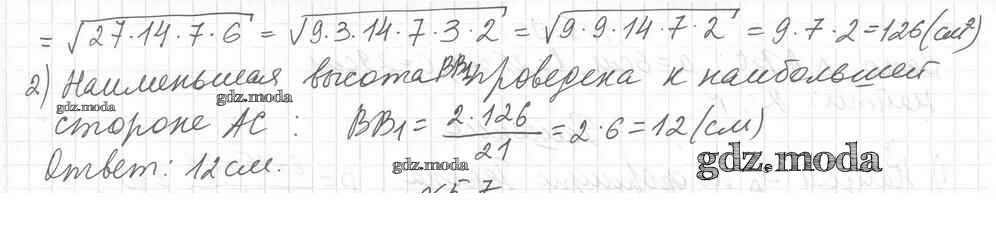 = √27·14·7·6 = √9·3·14·7·3·2 = √9·9·14·7·2 = 9·7·2 = 126 (см²)
2) Наименьшая высота BB₁ проведена к наибольшей
gdz.moda gdz.moda
стороне AC : BB₁ = 2·126/21 = 2·6 = 12 (см)
Ответ: 12 см.
gdz.moda gdz.moda